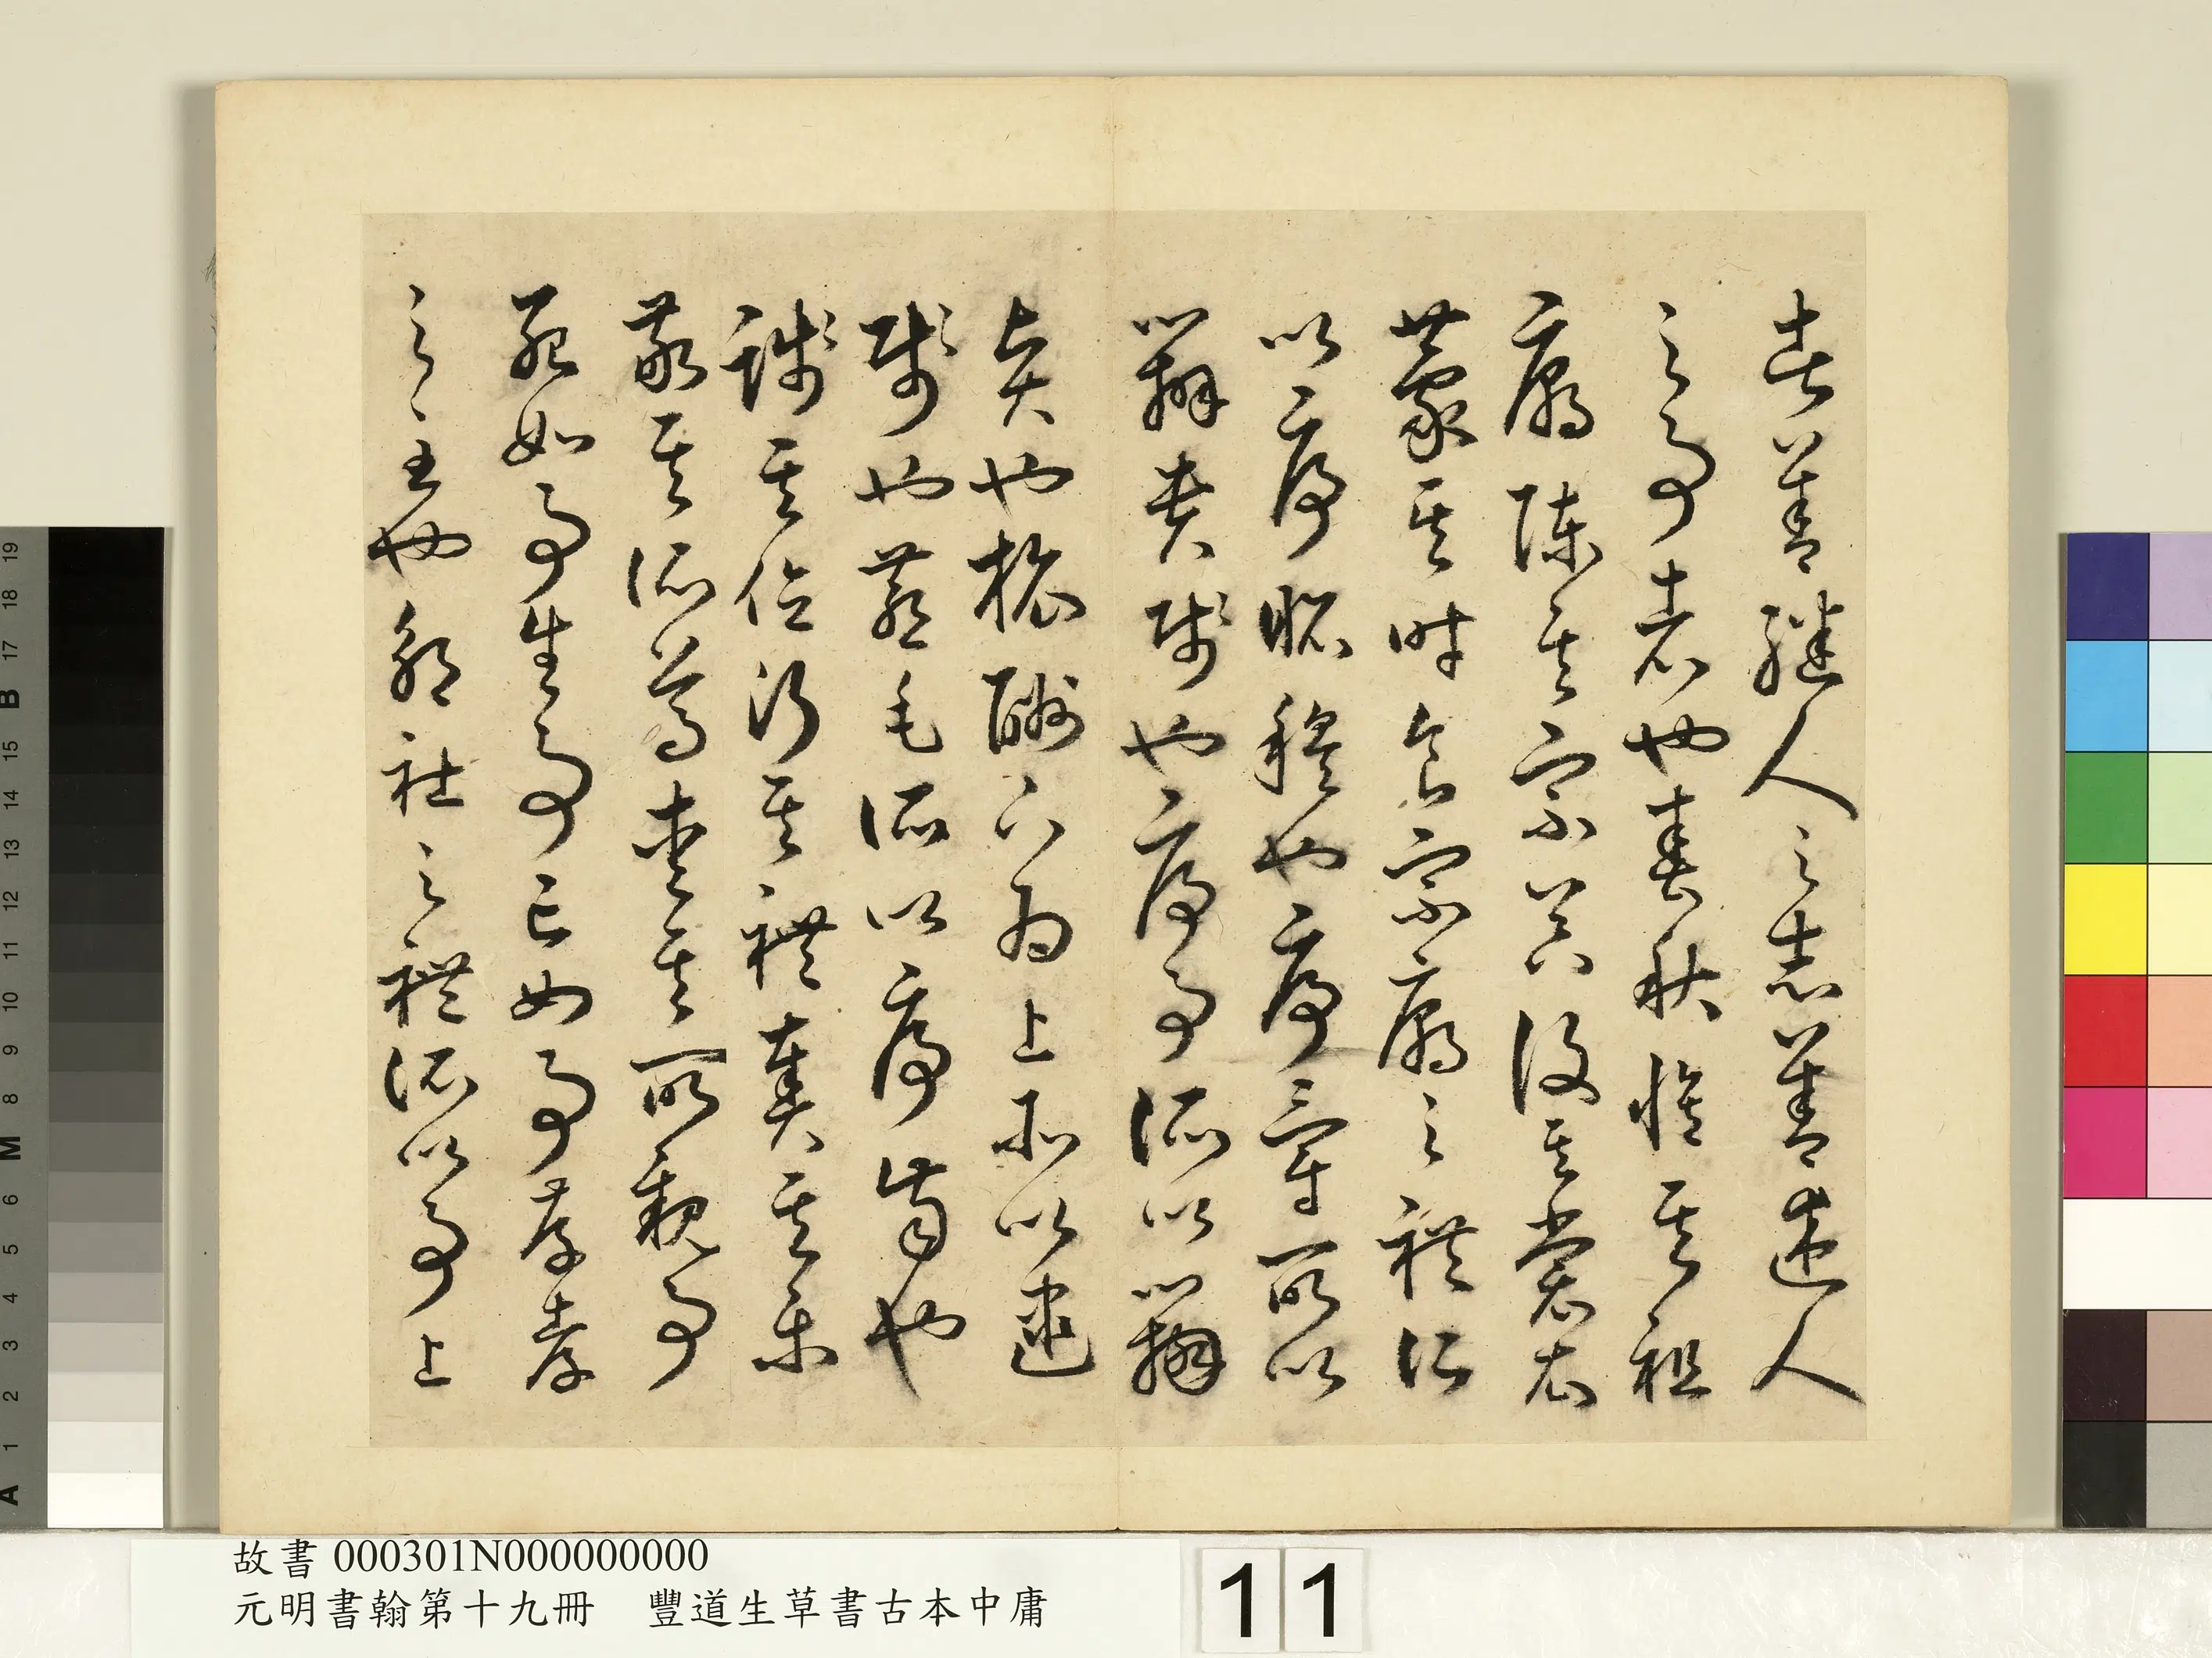 者善繼人之志善述人
之事者也春秋脩其祖
廟陳其宗器設其裳衣
薦其時食宗廟之禮所
以序昭穆也序爵所以
辨貴賤也序事所以辨
賢也旅酬下為上所以逮
賤也燕毛所以序齒也
踐其位行其禮奏其樂
敬其所尊愛其所親事
死如事生事亡如事存孝
之至也郊社之禮所以事上
故書 000301N000000000
元明書翰第十九冊 豐道生草書古本中庸
11
A 1 2 3 4 5 6 M 8 9 10 11 12 13 14 15 B 17 18 19